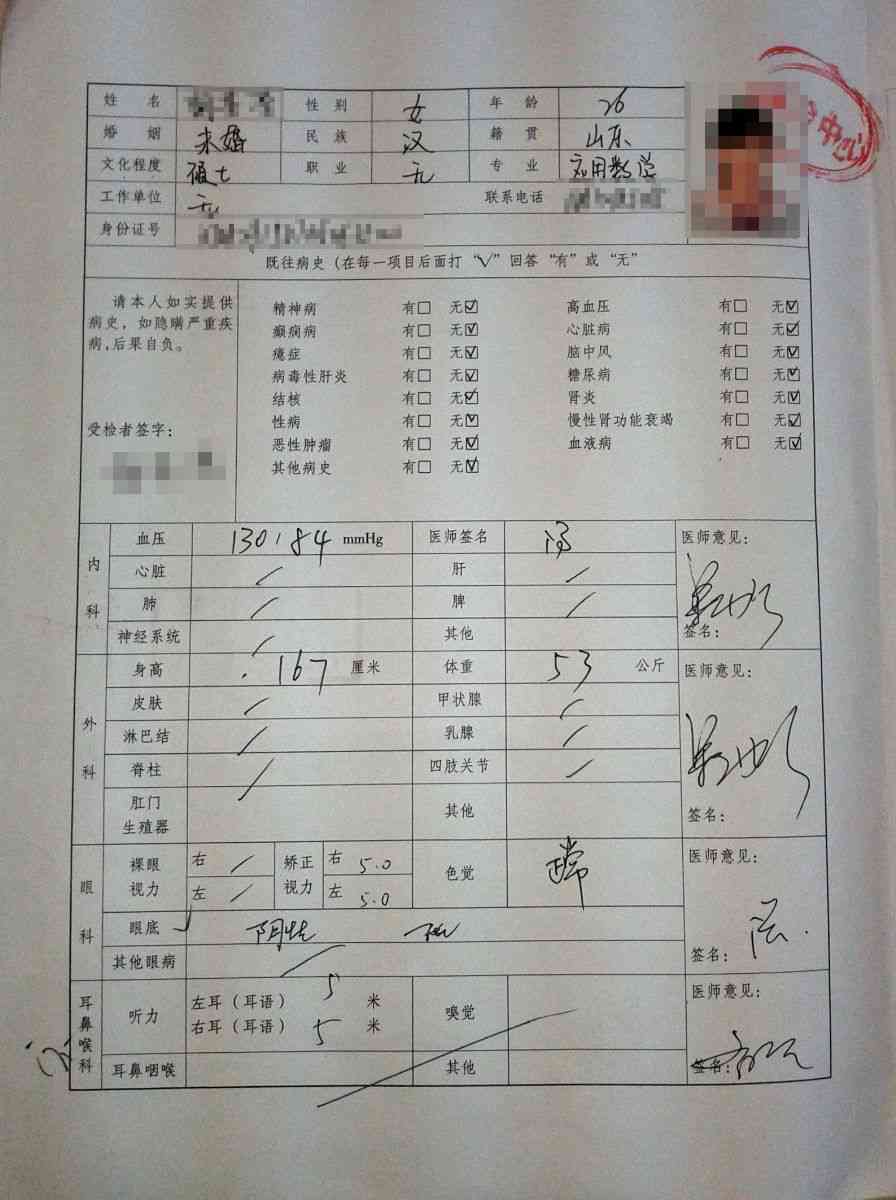 中心
姓 名 性 别 女 年 龄 26
婚 姻 未婚 民 族 汉 籍 贯 山东
文化程度 硕士 职 业 无 专 业 应用数学
工作单位 无 联系电话
身份证号
既往病史（在每一项目后面打“√”回答“有”或“无”
请本人如实提供
病史，如隐瞒严重疾
病，后果自负。
受检者签字：
精神病 有□ 无☑ 高血压 有□ 无☑
癫痫病 有□ 无☑ 心脏病 有□ 无☑
癔症 有□ 无☑ 脑中风 有□ 无☑
病毒性肝炎 有□ 无☑ 糖尿病 有□ 无☑
结核 有□ 无☑ 肾炎 有□ 无☑
性病 有□ 无☑ 慢性肾功能衰竭 有□ 无☑
恶性肿瘤 有□ 无☑ 血液病 有□ 无☑
其他病史 有□ 无☑
内科
血压 130/84 mmHg 医师签名 医师意见：
心脏 / 肝 /
肺 / 脾 /
神经系统 / 其他 签名：
外科
身高 167 厘米 体重 53 公斤 医师意见：
皮肤 / 甲状腺 /
淋巴结 / 乳腺 /
脊柱 / 四肢关节 /
肛门
生殖器 其他 签名：
眼科
裸眼视力 右 / 矫正视力 右 5.0 色觉 常 医师意见：
左 / 左 5.0
眼底 阴性 签名：
其他眼病 /
耳鼻喉科
听力 左耳（耳语） 5 米 嗅觉 医师意见：
右耳（耳语） 5 米
耳鼻咽喉 其他 签名：